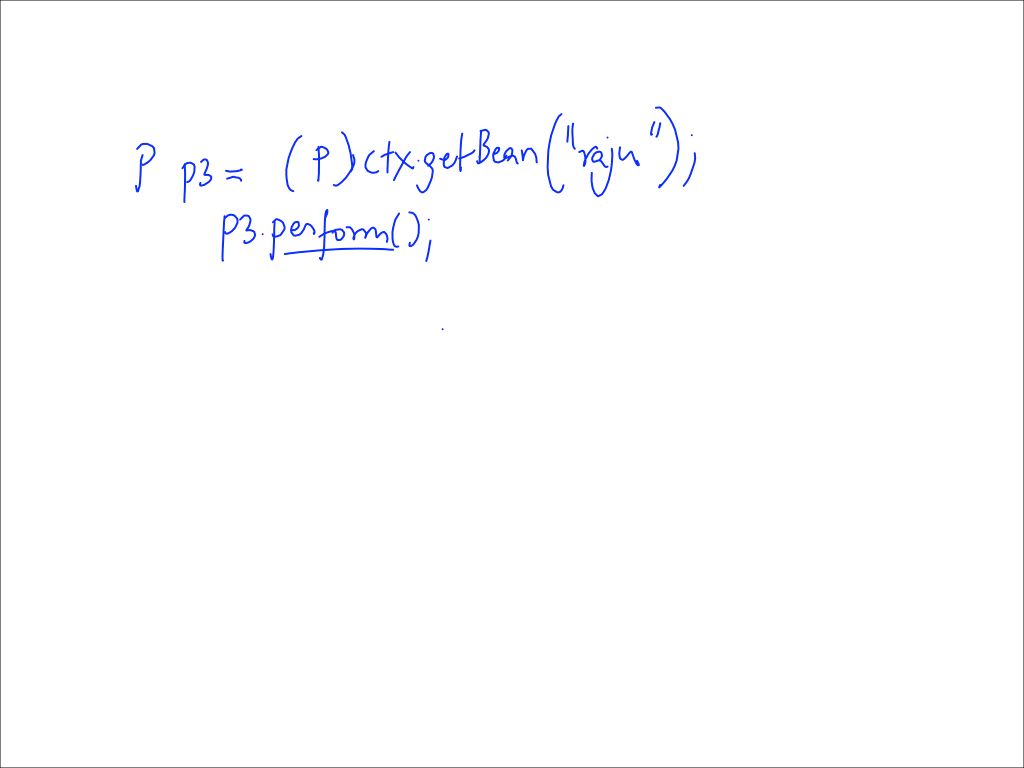 P p3 = (P)ctx.getBean("raju");
p3.perform();